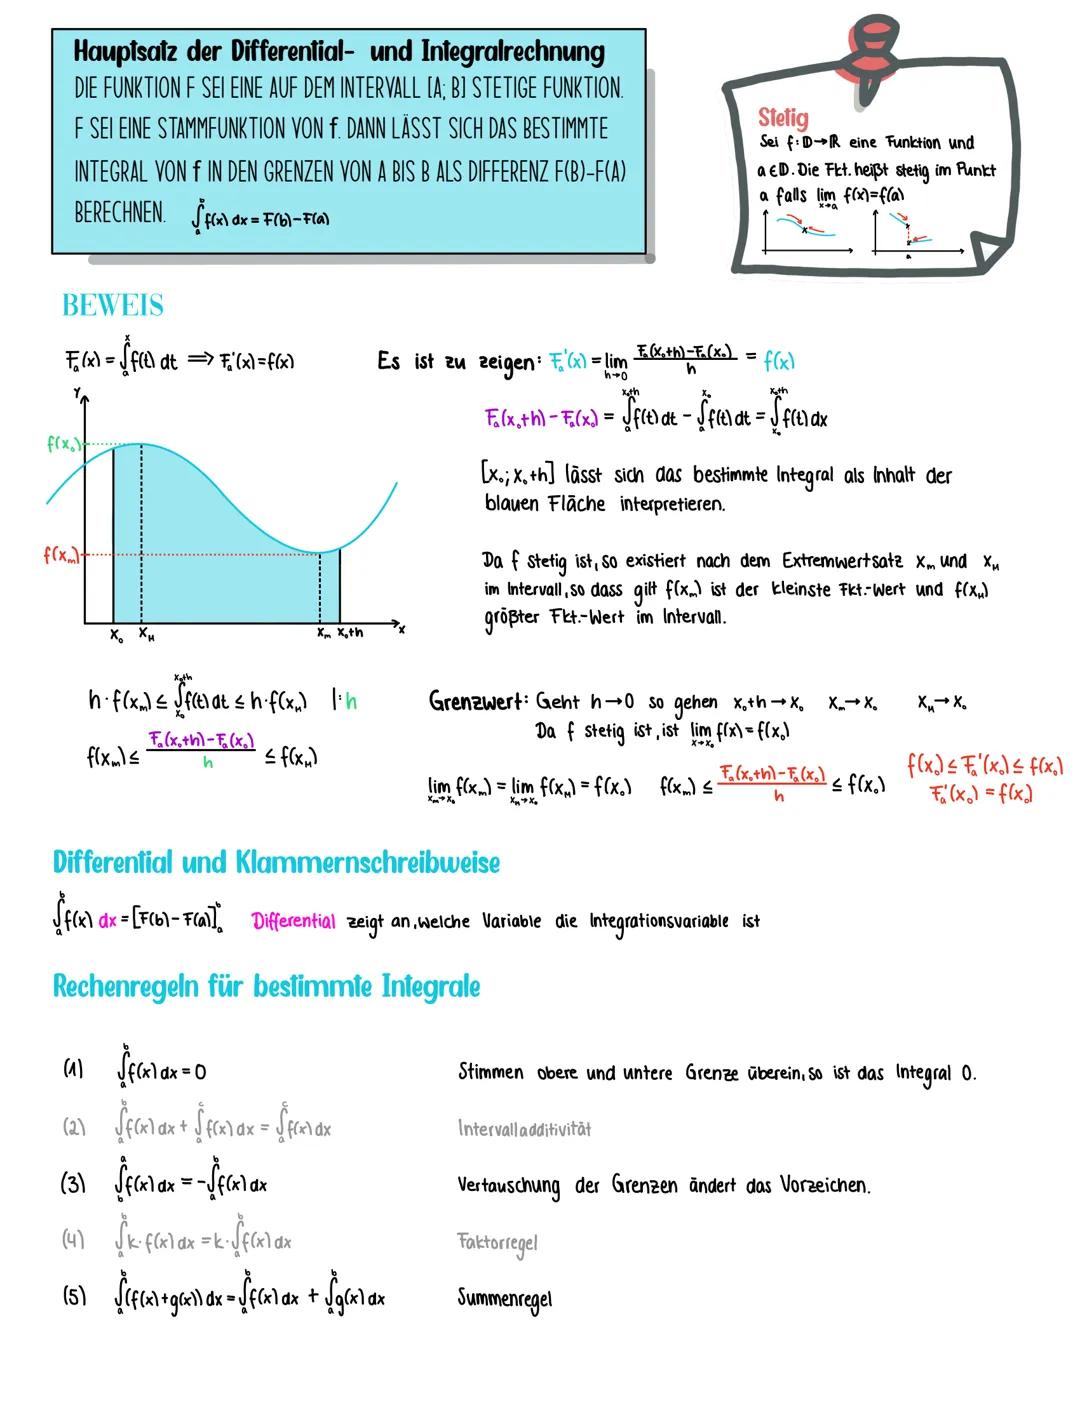 Hauptsatz der Differential- und Integralrechnung
DIE FUNKTION F SEI EINE AUF DEM INTERVALL [A; B] STETIGE FUNKTION.
F SEI EINE STAMMFUNKTION VON f. DANN LÄSST SICH DAS BESTIMMTE
INTEGRAL VON f IN DEN GRENZEN VON A BIS B ALS DIFFERENZ F(B)-F(A)
BERECHNEN. ∫ₐᵇ f(x) dx = F(b)-F(a)
Stetig
Sei f: D→ℝ eine Funktion und
a ∈ D. Die Fkt. heißt stetig im Punkt
a falls lim x→a f(x)=f(a)
a
BEWEIS
Fₐ(x) = ∫ₐˣ f(t) dt ⟹ Fₐ'(x)=f(x)
Es ist zu zeigen: Fₐ'(x) = lim h→0 (Fₐ(x₀+h)-Fₐ(x₀))/h = f(x)
Fₐ(x₀+h) - Fₐ(x₀) = ∫ₐ^(x₀+h) f(t) dt - ∫ₐ^(x₀) f(t) dt = ∫_(x₀)^(x₀+h) f(t) dx
[x₀; x₀+h] lässt sich das bestimmte Integral als Inhalt der
blauen Fläche interpretieren.
Da f stetig ist, so existiert nach dem Extremwertsatz xₘ und x_M
im Intervall, so dass gilt f(xₘ) ist der kleinste Fkt.-Wert und f(x_M)
größter Fkt.-Wert im Intervall.
Y
f(x₀)
f(xₘ)
x₀ x_M xₘ x₀+h x
h·f(xₘ) ≤ ∫_(x₀)^(x₀+h) f(t) dt ≤ h·f(x_M) |:h
f(xₘ) ≤ (Fₐ(x₀+h)-Fₐ(x₀))/h ≤ f(x_M)
Grenzwert: Geht h→0 so gehen x₀+h→x₀ xₘ→x₀ x_M→x₀
Da f stetig ist, ist lim x→x₀ f(x) = f(x₀)
lim xₘ→x₀ f(xₘ) = lim x_M→x₀ f(x_M) = f(x₀) f(xₘ) ≤ (Fₐ(x₀+h)-Fₐ(x₀))/h ≤ f(x₀)
f(x₀) ≤ Fₐ'(x₀) ≤ f(x₀)
Fₐ'(x₀) = f(x₀)
Differential und Klammernschreibweise
∫ₐᵇ f(x) dx = [F(b)-F(a)]ₐᵇ Differential zeigt an, welche Variable die Integrationsvariable ist
Rechenregeln für bestimmte Integrale
(1) ∫ₐᵇ f(x) dx = 0 Stimmen obere und untere Grenze überein, so ist das Integral 0.
(2) ∫ₐᵇ f(x) dx + ∫ₐᶜ f(x) dx = ∫ₐᶜ f(x) dx Intervalladditivität
(3) ∫_b^a f(x) dx = -∫ₐᵇ f(x) dx Vertauschung der Grenzen ändert das Vorzeichen.
(4) ∫ₐᵇ k·f(x) dx = k·∫ₐᵇ f(x) dx Faktorregel
(5) ∫ₐᵇ (f(x)+g(x)) dx = ∫ₐᵇ f(x) dx + ∫ₐᵇ g(x) dx Summenregel